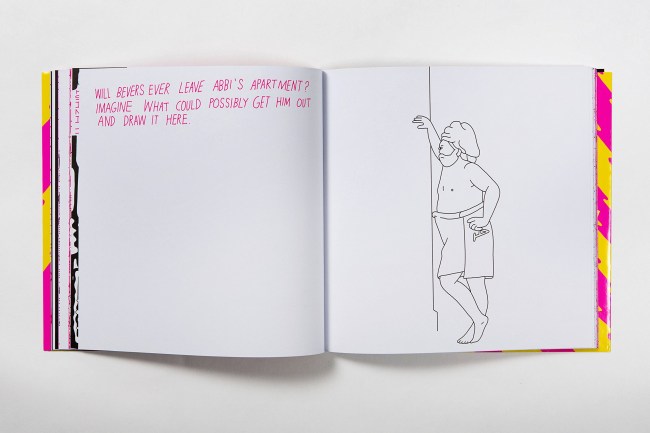 WILL BEVERS EVER LEAVE ABBI'S APARTMENT?
IMAGINE WHAT COULD POSSIBLY GET HIM OUT
AND DRAW IT HERE.